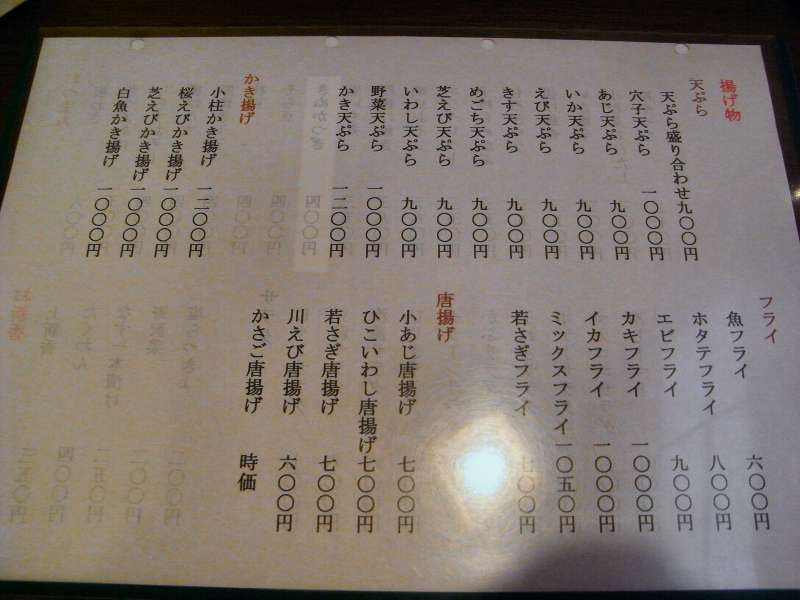 揚げ物
天ぷら
天ぷら盛り合わせ九〇〇円
穴子天ぷら 一〇〇〇円
あじ天ぷら 九〇〇円
いか天ぷら 九〇〇円
えび天ぷら 九〇〇円
きす天ぷら 九〇〇円
めごち天ぷら 九〇〇円
芝えび天ぷら 九〇〇円
いわし天ぷら 九〇〇円
野菜天ぷら 一〇〇〇円
かき天ぷら 一二〇〇円
かき揚げ
小柱かき揚げ 一二〇〇円
桜えびかき揚げ 一〇〇〇円
芝えびかき揚げ 一〇〇〇円
白魚かき揚げ 一〇〇〇円
フライ
魚フライ 六〇〇円
ホタテフライ 八〇〇円
エビフライ 九〇〇円
カキフライ 一〇〇〇円
イカフライ 一〇〇〇円
ミックスフライ 一〇五〇円
若さぎフライ 七〇〇円
唐揚げ
小あじ唐揚げ 七〇〇円
ひこいわし唐揚げ七〇〇円
若さぎ唐揚げ 七〇〇円
川えび唐揚げ 六〇〇円
かさご唐揚げ 時価